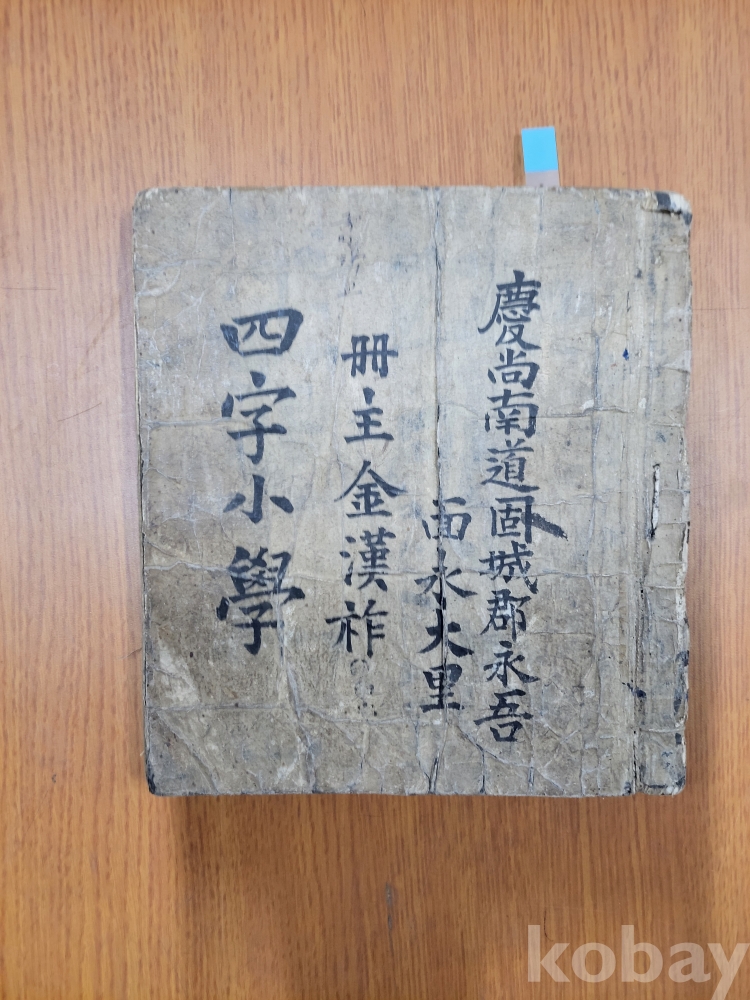 慶尚南道固城郡永吾
面永大里
冊主金漢祚
四字小學
kobay